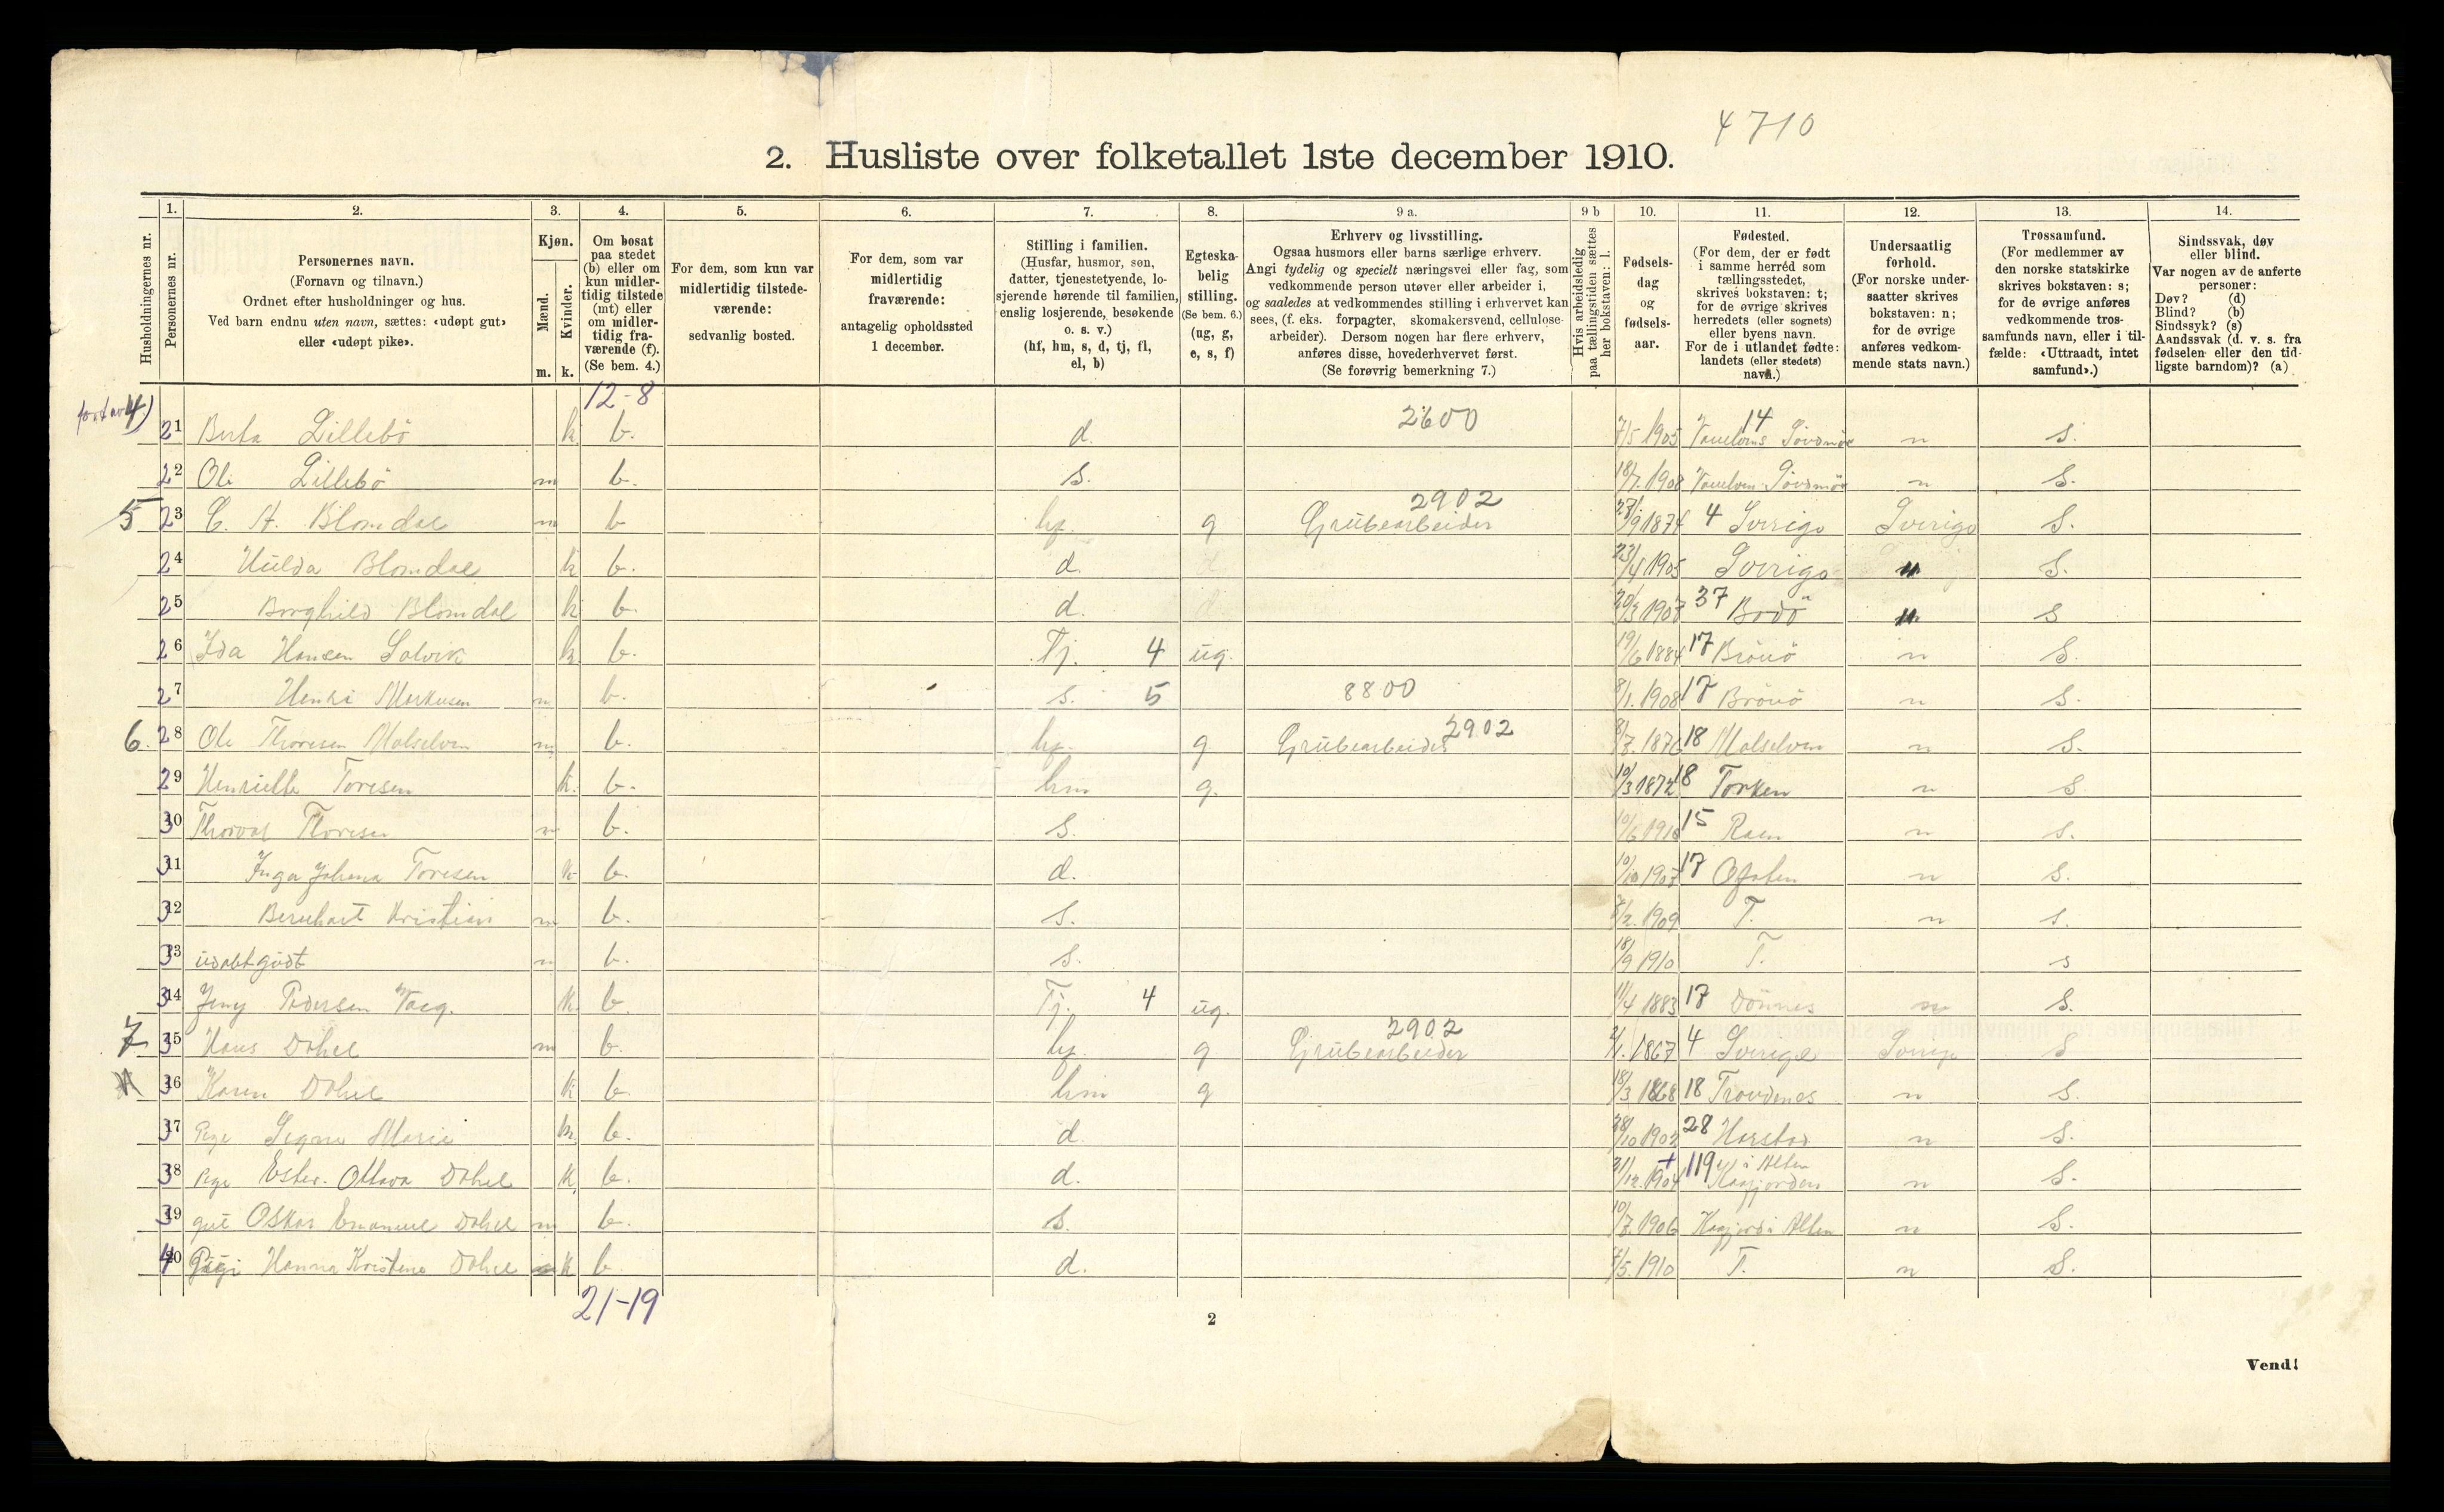 4710
2. Husliste over folketallet 1ste december 1910.
Husholdningernes nr.
1. Personernes nr.
2. Personernes navn.
(Fornavn og tilnavn.)
Ordnet efter husholdninger og hus.
Ved barn endnu uten navn, sættes: «udøpt gut»
eller «udøpt pike».
3. Kjøn.
Mænd. m.
Kvinder. k.
4. Om bosat
paa stedet
(b) eller om
kun midler-
tidig tilstede
(mt) eller
om midler-
tidig fra-
værende (f).
(Se bem. 4.)
5. For dem, som kun var
midlertidig tilstede-
værende:
sedvanlig bosted.
6. For dem, som var
midlertidig
fraværende:
antagelig opholdssted
1 december.
7. Stilling i familien.
(Husfar, husmor, søn,
datter, tjenestetyende, lo-
sjerende hørende til familien,
enslig losjerende, besøkende
o. s. v.)
(hf, hm, s, d, tj, fl,
el, b)
8. Egteska-
belig
stilling.
(Se bem. 6.)
(ug, g,
e, s, f)
9 a. Erhverv og livsstilling.
Ogsaa husmors eller barns særlige erhverv.
Angi tydelig og specielt næringsvei eller fag, som
vedkommende person utøver eller arbeider i,
og saaledes at vedkommendes stilling i erhvervet kan
sees, (f. eks. forpagter, skomakersvend, cellulose-
arbeider). Dersom nogen har flere erhverv,
anføres disse, hovederhvervet først.
(Se forøvrig bemerkning 7.)
9 b Hvis arbeidsledig
paa tællingstiden sættes
her bokstaven: l.
10. Fødsels-
dag
og
fødsels-
aar.
11. Fødested.
(For dem, der er født
i samme herred som
tællingsstedet,
skrives bokstaven: t;
for de øvrige skrives
herredets (eller sognets)
eller byens navn.
For de i utlandet fødte:
landets (eller stedets)
navn.)
12. Undersaatlig
forhold.
(For norske under-
saatter skrives
bokstaven: n;
for de øvrige
anføres vedkom-
mende stats navn.)
13. Trossamfund.
(For medlemmer av
den norske statskirke
skrives bokstaven: s;
for de øvrige anføres
vedkommende tros-
samfunds navn, eller i til-
fælde: «Uttraadt, intet
samfund».)
14. Sindssvak, døv
eller blind.
Var nogen av de anførte
personer:
Døv? (d)
Blind? (b)
Sindssyk? (s)
Aandssvak (d. v. s. fra
fødselen eller den tid-
ligste barndom)? (a)
12-8
4) 21 Berta Lillebö k b. d. 2600 7/5 1905 14 n S.
22 Ole Lillebö m b. S. 18/7 1908 n S.
5 23 C. A. Blomdal m b hf. g Grubearbeider 2902 1874 4 Sverige Sverige S.
24 Hulda Blomdal k b. d. 23/4 1905 Sverige n S.
25 Borghild Blomdal k b. d. 1907 37 Bodö n S
26 Ida Hansen Solvik k. b. Tj. 4 ug. 19/6 1884 17 Brönö n S.
27 Henri Markusen m b. S. 5 8800 8/1. 1908 17 Brönö n S.
6. 28 Ole Thoresen Malselven m b. hf. g Grubearbeider 2902 1876 18 Malselven n S.
29 Toresen k. b. hm g. 10/3 1872 18 n S
30 Thorval Thoresen m b. S. 10/6 1910 15 n S.
31 Inga Johena Toresen k b. d. 10/10 1907 17 Ofoten n S.
32 Bernhart Kristian m b. S. 7/2. 1909 T. n S.
33 m b. S. 18/9 1910 T. s
34 Jeny Pedersen k. b. Tj. 4 ug. 11/4 1883 17 Dönnes n S.
7 35 Hans Dahl m b. hf. g Grubearbeider 2902 2/1. 1867 4 Sverige Sverige S
36 Karen Dahl k b hm g 18/3 1868 18 Trondenes n S.
37 Pige Signe Marie k. b. d 28/10 1902 28 Harstad n S.
38 Pige Ester Ottava k. b. d. 31/12. 1904 119 i Alten n S.
39 gut Oskar Emanuel m b. S. 1906 Kaafjord i Alten n S.
40 Hanna Kristine k b. d. 7/5. 1910 T. n S.
21-19
2
Vend!